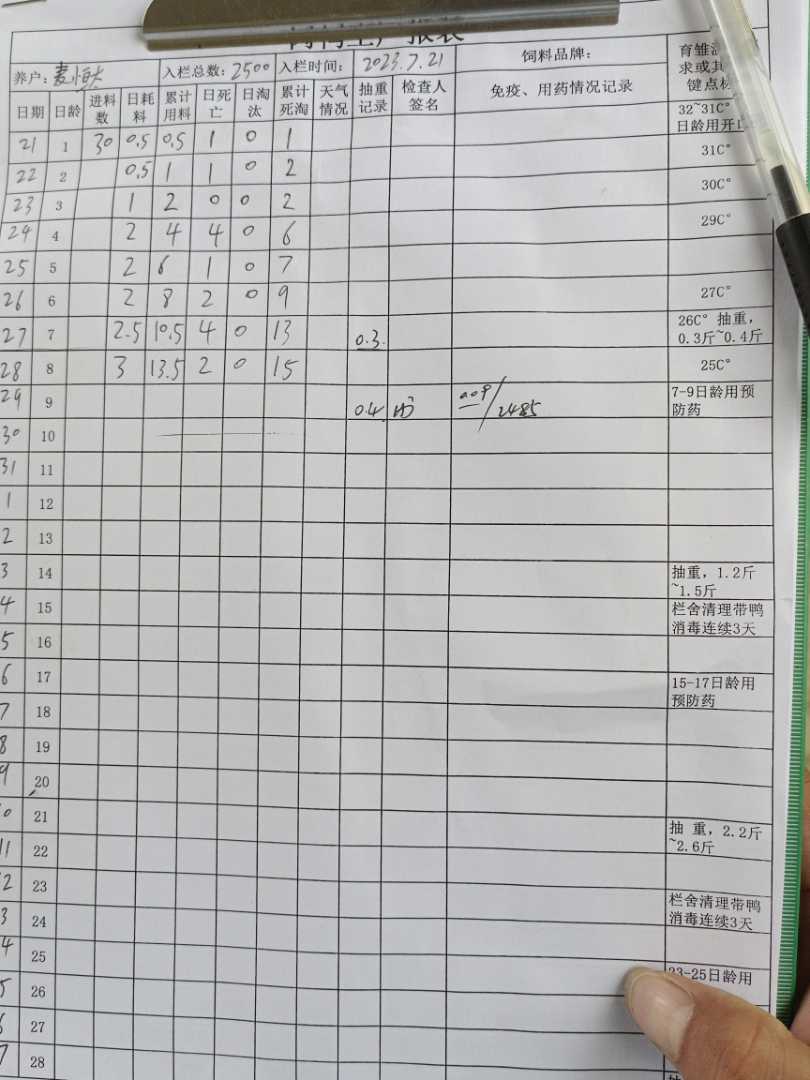 养户：麦恒大 入栏总数：2500 入栏时间：2023.7.21 饲料品牌：
日期 日龄 进料数 日耗料 累计用料 日死亡 日淘汰 累计死淘 天气情况 抽重记录 检查人签名 免疫、用药情况记录
21 1 30 0.5 0.5 1 0 1 32~31C°
22 2 0.5 1 1 0 2 31C°
23 3 1 2 0 0 2 30C°
24 4 2 4 4 0 6 29C°
25 5 2 6 1 0 7
26 6 2 8 2 0 9 27C°
27 7 2.5 10.5 4 0 13 0.3 26C° 抽重，0.3斤~0.4斤
28 8 3 13.5 2 0 15 25C°
29 9 0.4 2485 7-9日龄用预防药
30 10
31 11
1 12
2 13
3 14 抽重，1.2斤~1.5斤
4 15 栏舍清理带鸭消毒连续3天
5 16
6 17 15-17日龄用预防药
7 18
8 19
9 20
0 21
11 22 抽 重，2.2斤~2.6斤
2 23
3 24 栏舍清理带鸭消毒连续3天
4 25
5 26 23-25日龄用
6 27
7 28